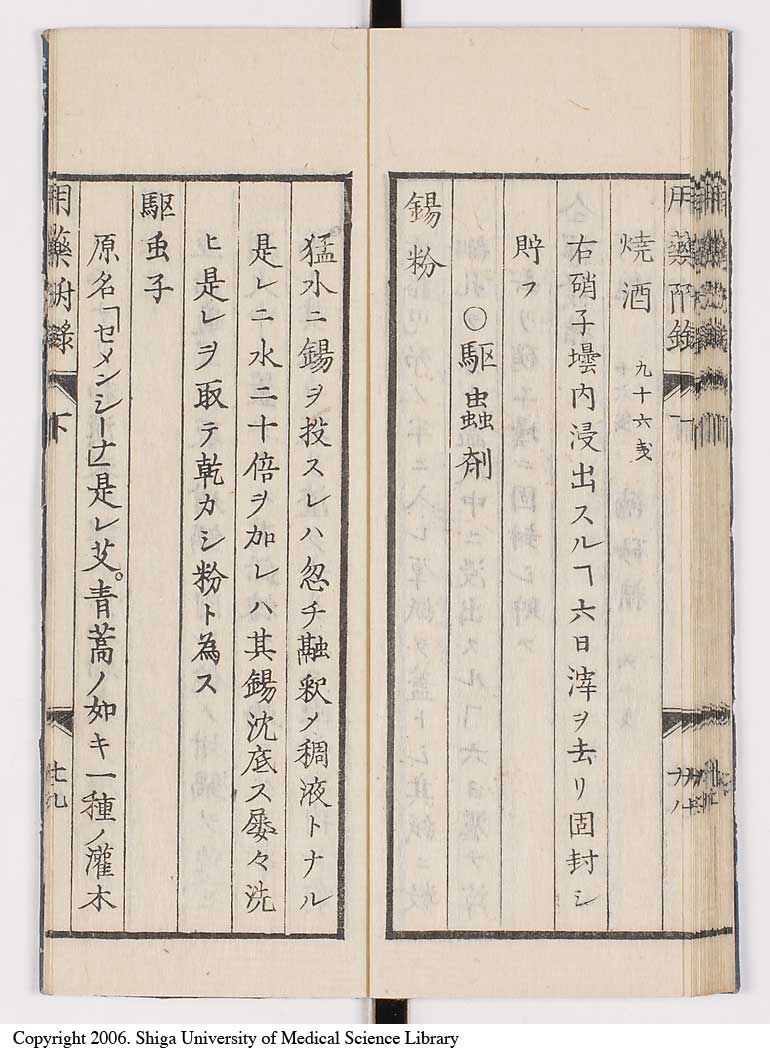 燒酒 九十六戔
右硝子壜内浸出スルヿ六日滓ヲ去リ固封シ
貯フ
○駆蟲剤
錫粉
猛水ニ錫ヲ投スレハ忽チ融釈メ稠液トナル
是レニ水二十倍ヲ加レハ其錫沈底ス屡々洗
ヒ是レヲ取テ乾カシ粉ト為ス
駆虫子
原名「セメンシーナ」是レ艾。青蒿ノ如キ一種ノ灌木
用藥附錄
下
廿九
Copyright 2006. Shiga University of Medical Science Library